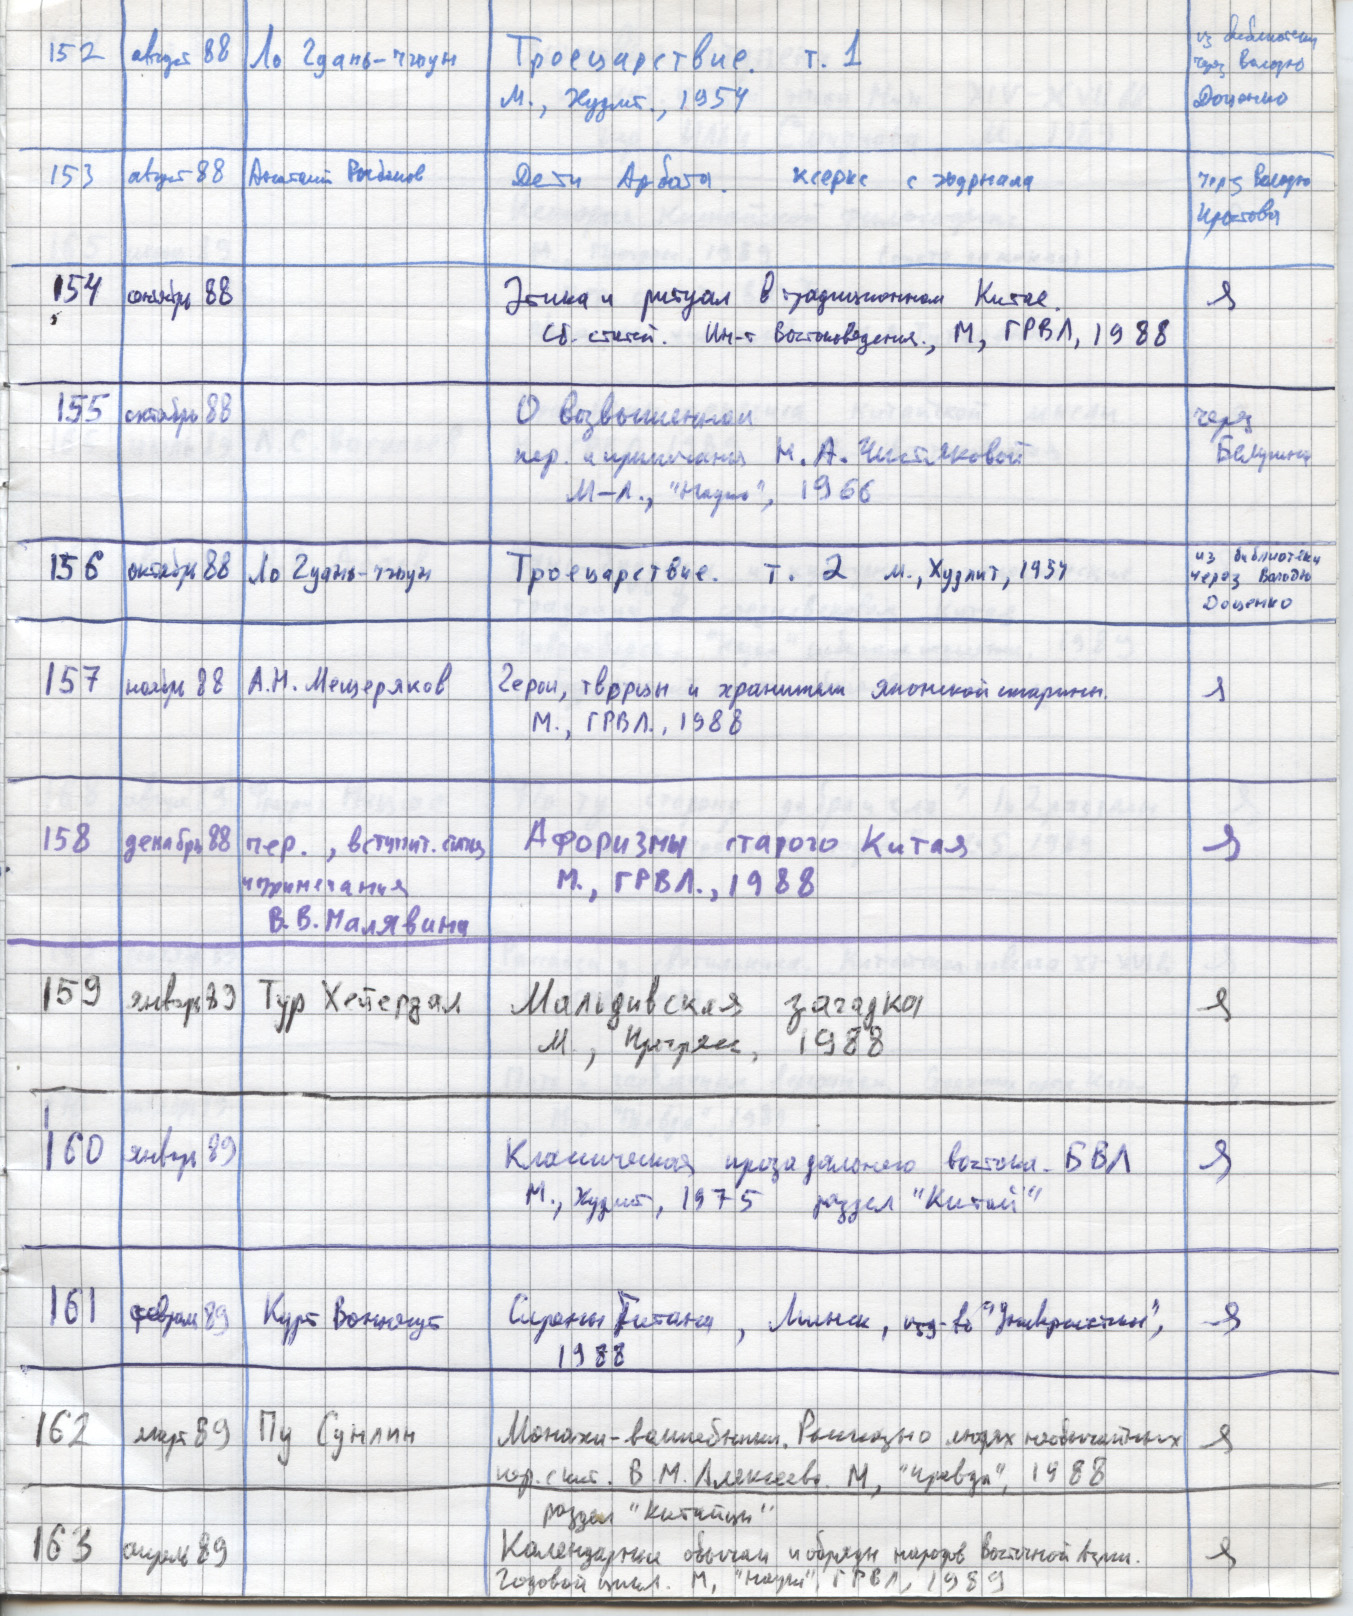 152 август 88 Ло Гуань-чжун Троецарствие. т. 1 из библиотеки
М., Худлит., 1954 через Володю
Доценко
153 август 88 Анатолий Рыбаков Дети Арбата. ксерокс с журнала через Володю
154 октябрь 88 Этика и ритуал в традиционном Китае. Я
Сб. статей. Ин-т Востоковедения., М, ГРВЛ, 1988
155 октябрь 88 О возвышенном через
пер. и примечания Н. А. Чистяковой
М-Л., "Наука", 1966
156 октябрь 88 Ло Гуань-чжун Троецарствие. т. 2 М., Худлит, 1954 из библиотеки
через Володю
Доценко
157 ноябрь 88 А.Н. Мещеряков Герои, творцы и хранители японской старины. Я
М., ГРВЛ., 1988
158 декабрь 88 пер., вступит. статья Афоризмы старого Китая Я
и примечания М., ГРВЛ., 1988
В.В. Малявина
159 январь 89 Тур Хейердал Мальдивская загадка Я
М., Прогресс, 1988
160 январь 89 Классическая проза дальнего востока. БВЛ Я
М., Худлит, 1975 раздел "Китай"
161 февраль 89 Курт Воннегут Сирены Титана, Минск, изд-во "Университетское", Я
1988
162 март 89 Пу Сунлин Монахи-волшебники. Рассказы о людях необычайных Я
пер. с кит. В.М. Алексеева. М, "Правда", 1988
раздел "Китайцы"
163 апрель 89 Календарные обычаи и обряды народов Восточной Азии. Я
Годовой цикл. М, "Наука", ГРВЛ, 1989